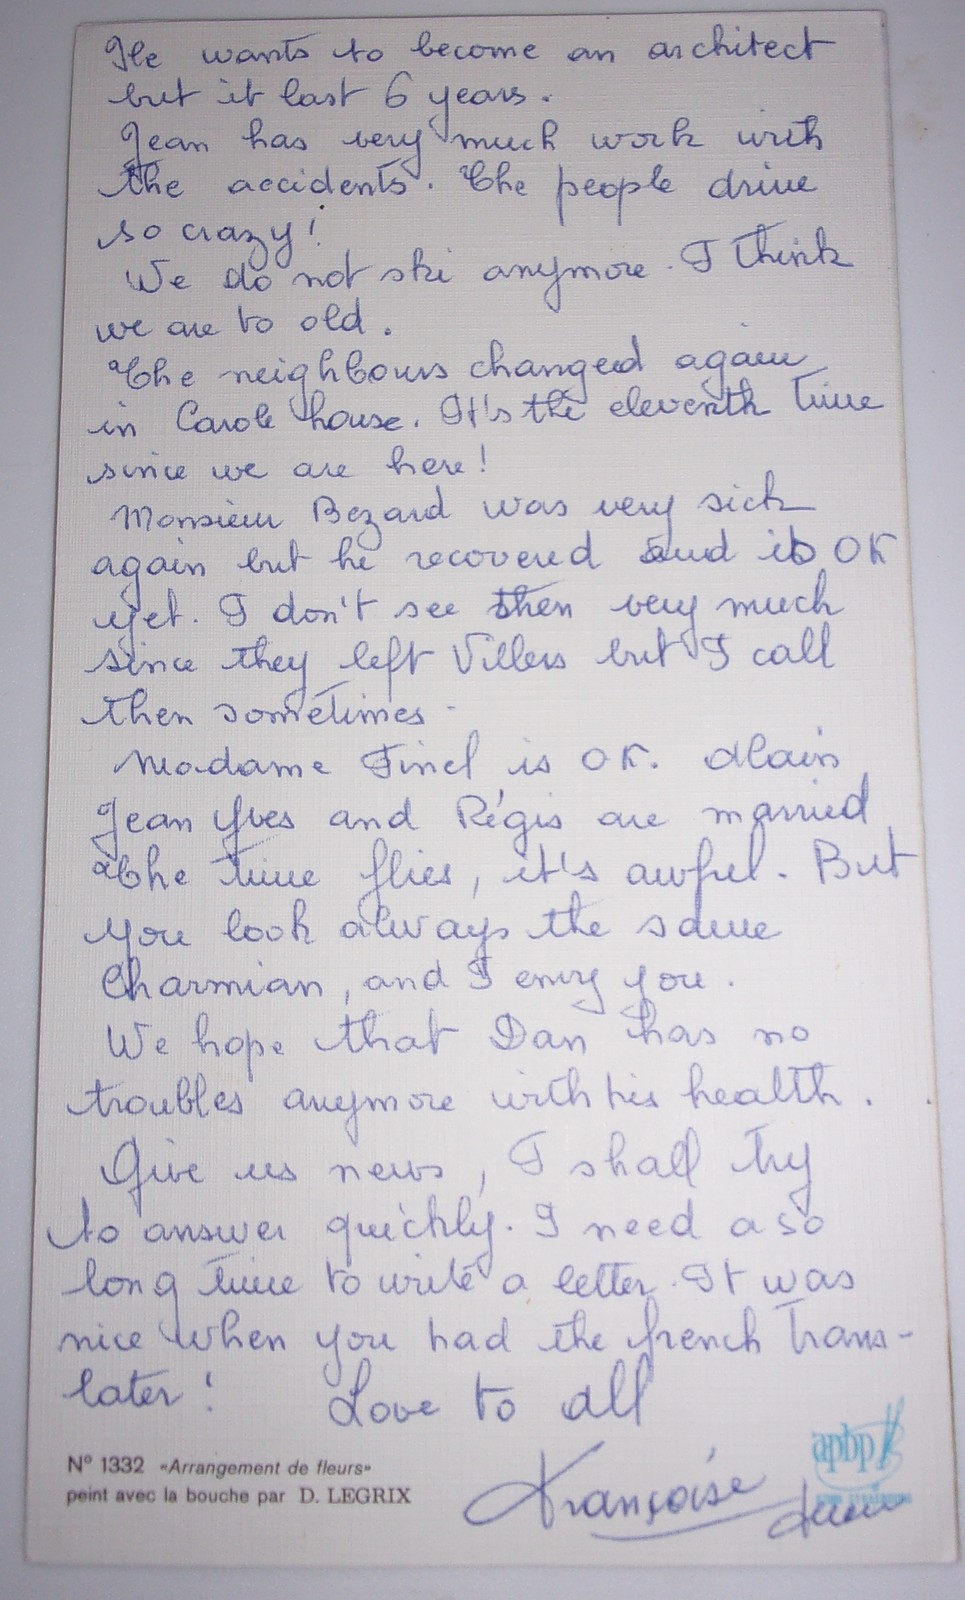 He wants to become an architect
but it last 6 years.
Jean has very much work with
the accidents. The people drive
so crazy!
We do not ski anymore. I think
we are to old.
The neighbours changed again
in Carole house. It's the eleventh time
since we are here!
Monsieur Bezard was very sick
again but he recovered and is OK
yet. I don't see then very much
since they left Villers but I call
then sometimes.
Madame Finel is OK. Alain
Jean Yves and Régis are married
The time flies, it's awful. But
you look always the same
Charmian, and I envy you.
We hope that Dan has no
troubles anymore with his health.
Give us news, I shall try
to answer quickly. I need a so
long time to write a letter. It was
nice when you had the french trans-
later! Love to all
N° 1332 «Arrangement de fleurs»
peint avec la bouche par D. LEGRIX
apbp
Françoise